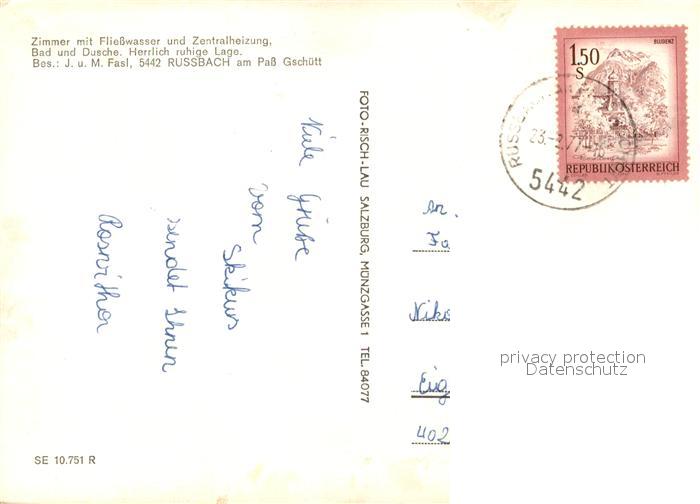 Zimmer mit Fließwasser und Zentralheizung,
Bad und Dusche. Herrlich ruhige Lage.
Bes.: J. u. M. Fasl, 5442 RUSSBACH am Paß Gschütt
Viele Grüße
vom
Skikurs
sendet Ihnen
FOTO-RISCH-LAU SALZBURG, MÜNZGASSE 1 TEL. 84077
An
Fa
Niko
Eug
402
1.50
S
BLUDENZ
REPUBLIK ÖSTERREICH
5442
privacy protection
Datenschutz
SE 10.751 R